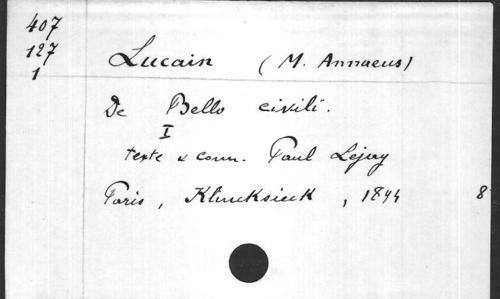 407
127
1
Lucain (M. Annaeus)
De Bello civili.
I
texte & comm. Paul Lejay
Paris, Klincksieck, 1894 8